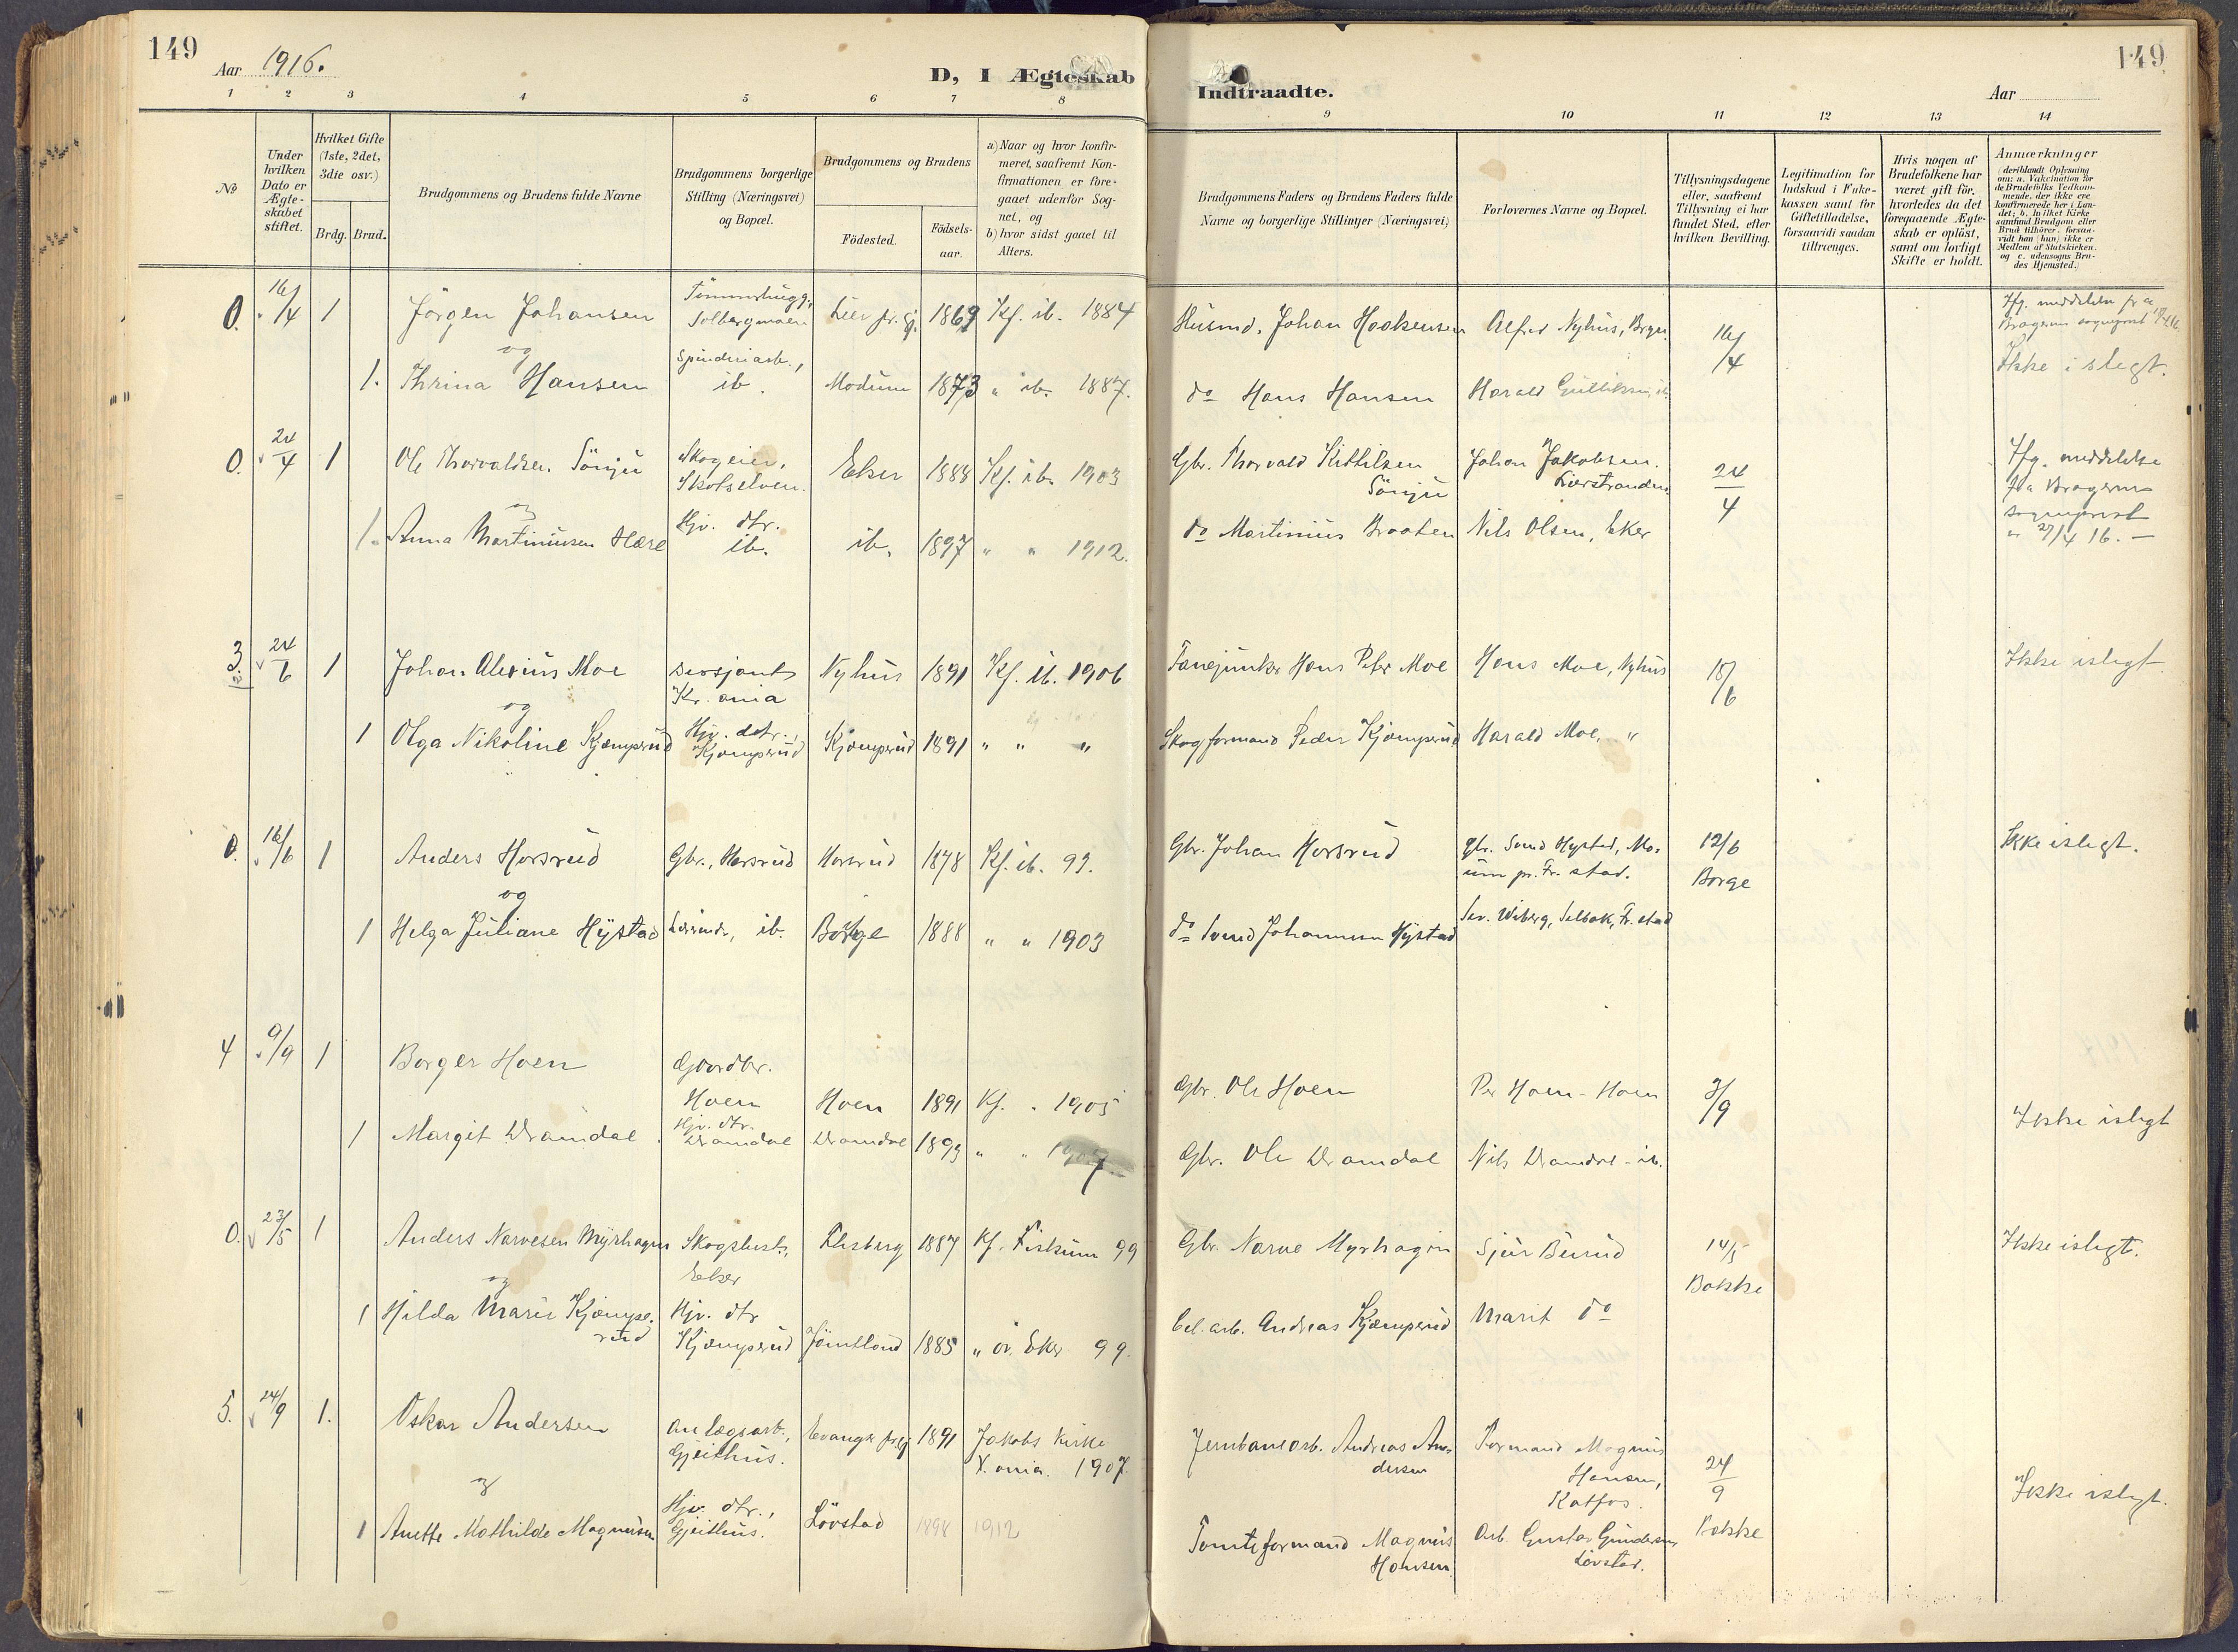 149
Aar 1916.
D, I Ægteskab
1 2 3 4 5 6 7 8
No
Under hvilken Dato er Ægteskabet stiftet.
Hvilket Gifte (1ste, 2det, 3die osv.)
Brdg. Brud.
Brudgommens og Brudens fulde Navne
Brudgommens borgerlige Stilling (Næringsvei) og Bopæl.
Brudgommens og Brudens
Födested.
Födsels-aar.
a) Naar og hvor konfir-
meret, saafremt Kon-
firmationen er fore-
gaaet udenfor Sog-
net, og
b) hvor sidst gaaet til
Alters.
149
Indtraadte.
Aar
9 10 11 12 13 14
Brudgommens Faders og Brudens Faders fulde
Navne og borgerlige Stillinger (Næringsvei)
Forlovernes Navne og Bopæl.
Tillysningsdagene
eller, saafremt
Tillysning ei har
fundet Sted, efter
hvilken Bevilling.
Legitimation for
Indskud i Enke-
kassen samt for
Giftetilladelse,
forsaavidt saadan
tiltrænges.
Hvis nogen af
Brudefolkene har
været gift för,
hvorledes da det
foregaaende Ægte-
skab er oplöst,
samt om lovligt
Skifte er holdt.
Anmærkninger
(deriblandt Oplysning
om: a. Vakcination for
de Brudefolks Vedkom-
mende, der ikke ere
konfirmerede her i Lan-
det; b. hvilket Kirke
samfund Brudgom eller
Brud tilhører, forsaa-
vidt han (hun) ikke er
Medlem af Statskirken.
og c. udensogns Bru-
des Hjemsted.)
0. 16/4 1 Jörgen Johansen Solbergmoen Lier 1869 Kf. ib. 1884 Husmd. Johan Haakensen Alfred Nyhus, 16/4
og
1. Thrina Hansen Spinderiarb., ib. Modum 1873 " ib. 1887. do Hans Hansen Harald Gulliksen, ib. Ikke i slegt.
0. 24/4 1 Ole Thorvaldsen Sönju Skogeier, Skotselven. Eker 1888 Kf. ib. 1903 Gbr. Thorvald Kittilsen Sönju Johan Jakobsen. Lierstranden 24/4 meddelelse fra Bragernes sogneprest 27/4 16. —
og
1. Anna Martinusen Hære Hjv. dtr. ib. ib. 1897 " " 1912. do Martinius Braaten Nils Olsen, Eker
3. 24/6 1 Johan Alexius Moe Sersjant Kr.ania Nyhus 1891 Kf. ib. 1906 Fanejunker Hans Peter Moe Hans Moe, Nyhus 18/6 Ikke i slegt
og
1 Olga Nikoline Kjæmperud Hjv. datr., Kjæmperud Kjæmperud 1891 " " " Skogformand Peder Kjæmperud Harald Moe, "
0. 16/6 1 Anders Horsrud Gbr., Horsrud Horsrud 1878 Kf. ib. 93. Gbr. Johan Horsrud 12/6 Borge Ikke i slegt.
og
1 Helga Juliane Hystad ib. Borge 1888 " " 1903 do Svend Johannesen Hystad Wiberg, Selbak, Fr.stad
4 9/9 1 Borger Hoen Gaardbr. Hoen Hoen 1891 Kf. " 1905 Gbr. Ole Hoen Per Hoen - Hoen 3/9 Ikke i slegt
1 Margit Dramdal Hjv. dtr. Dramdal Dramdal 1893 " " 1907 Gbr. Ole Dramdal Nils Dramdal - ib.
0. 23/5 1 Anders Narvesen Myrhagen Eker Flesberg 1887 Kf. Fiskum 99 Gbr. Narve Myrhagen Sjur Burud 14/5 Bakke Ikke i slegt.
og
1 Hilda Marie Kjæmperud Hjv. dtr Kjæmperud Jämtland 1885 " öv. Eker 99. Cel. arb. Andreas Kjæmperud Marit do
5. 24/9 1. Oskar Andersen Anlægsarb., Gjeithus. 1891 Jakobs Kirke X.ania. 1907. Jernbanearb. Andreas Andersen Formand Magnus Hansen, Katfos. 24/9 Bakke Ikke i slegt.
og
1 Anette Mathilde Magnusen Hjv. dtr., Gjeithus. Lövstad 1898 1912 Tomteformand Magnus Hansen Arb. Gustav Gundersen, Lövstad.